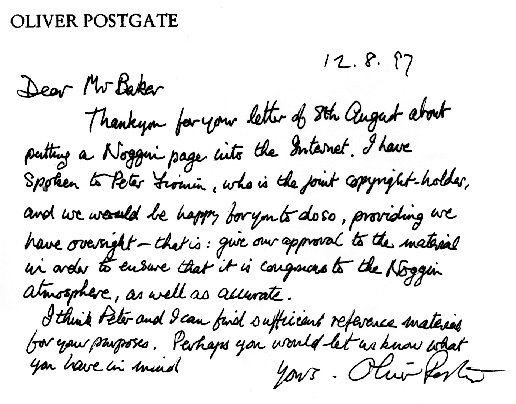 OLIVER POSTGATE
12.8.97
Dear Mr Baker
Thankyou for your letter of 8th August about
putting a Noggin page into the Internet. I have
Spoken to Peter Firmin, who is the joint copyright-holder,
and we would be happy for you to do so, providing we
have oversight – that is: give our approval to the material
in order to ensure that it is congruous to the Noggin
atmosphere, as well as accurate.
I think Peter and I can find sufficient reference material
for your purposes. Perhaps you would let us know what
you have in mind
Yours. Oliver Postgate